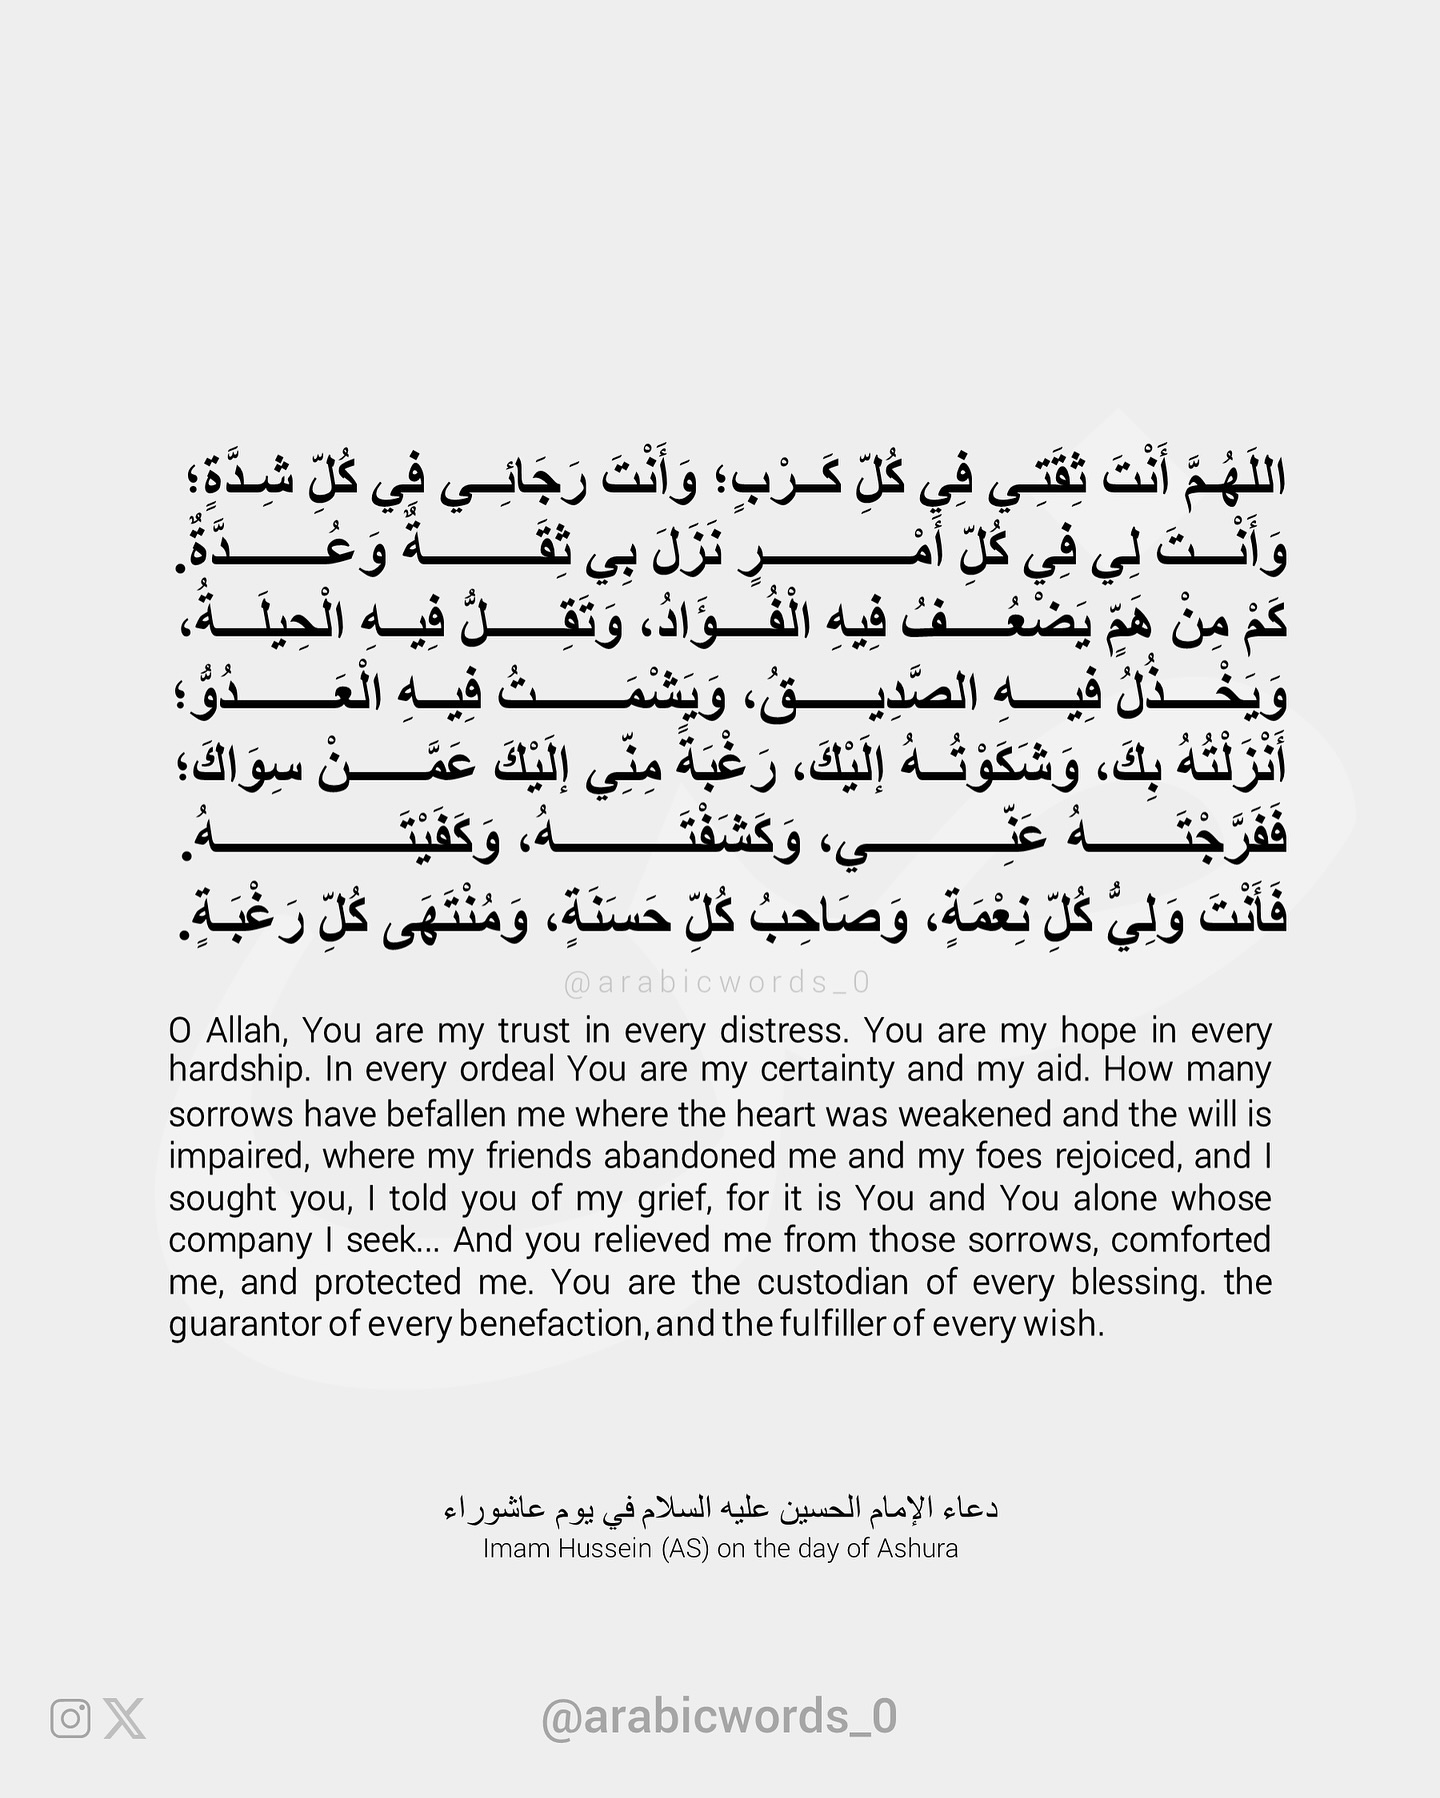 اللَهُمَّ أَنْتَ ثِقَتِي فِي كُلِّ كَرْبٍ؛ وَأَنْتَ رَجَائِي فِي كُلِّ شِدَّةٍ؛
وَأَنْتَ لِي فِي كُلِّ أَمْرٍ نَزَلَ بِي ثِقَةٌ وَعُدَّةٌ.
كَمْ مِنْ هَمٍّ يَضْعُفُ فِيهِ الْفُؤَادُ، وَتَقِلُّ فِيهِ الْحِيلَةُ،
وَيَخْذُلُ فِيهِ الصَّدِيقُ، وَيَشْمَتُ فِيهِ الْعَدُوُّ؛
أَنْزَلْتُهُ بِكَ، وَشَكَوْتُهُ إلَيْكَ، رَغْبَةً مِنِّي إلَيْكَ عَمَّنْ سِوَاكَ؛
فَفَرَّجْتَهُ عَنِّي، وَكَشَفْتَهُ، وَكَفَيْتَهُ.
فَأَنْتَ وَلِيُّ كُلِّ نِعْمَةٍ، وَصَاحِبُ كُلِّ حَسَنَةٍ، وَمُنْتَهَى كُلِّ رَغْبَةٍ.
@arabicwords_0
O Allah, You are my trust in every distress. You are my hope in every
hardship. In every ordeal You are my certainty and my aid. How many
sorrows have befallen me where the heart was weakened and the will is
impaired, where my friends abandoned me and my foes rejoiced, and I
sought you, I told you of my grief, for it is You and You alone whose
company I seek... And you relieved me from those sorrows, comforted
me, and protected me. You are the custodian of every blessing. the
guarantor of every benefaction, and the fulfiller of every wish.
دعاء الإمام الحسين عليه السلام في يوم عاشوراء
Imam Hussein (AS) on the day of Ashura
@arabicwords_0